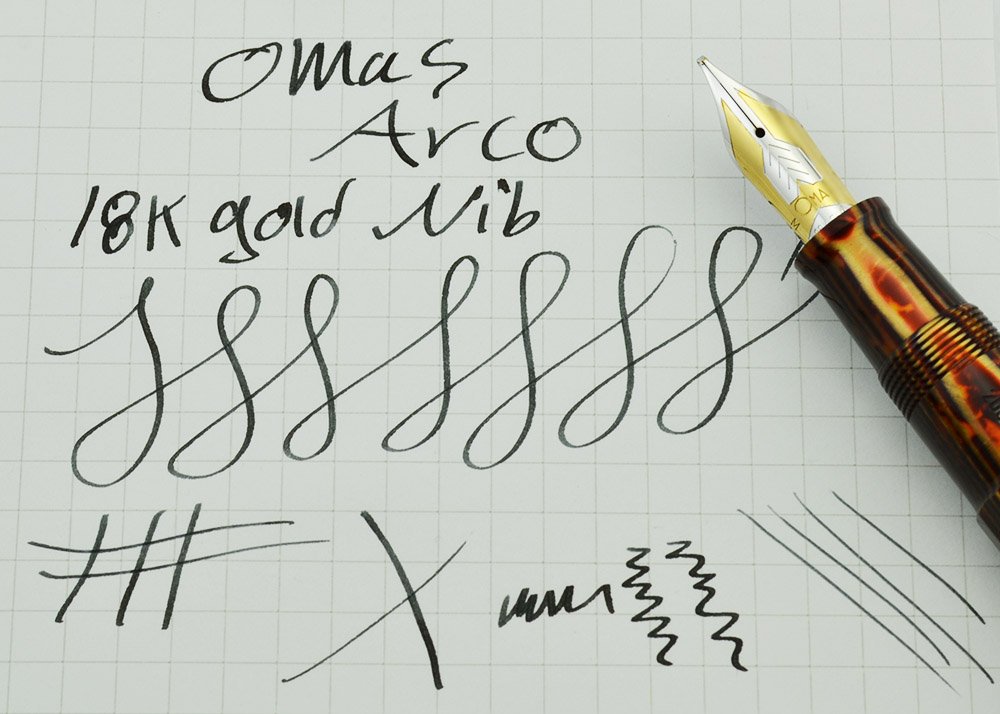 Omas
Arco
18K gold Nib
OMA
M